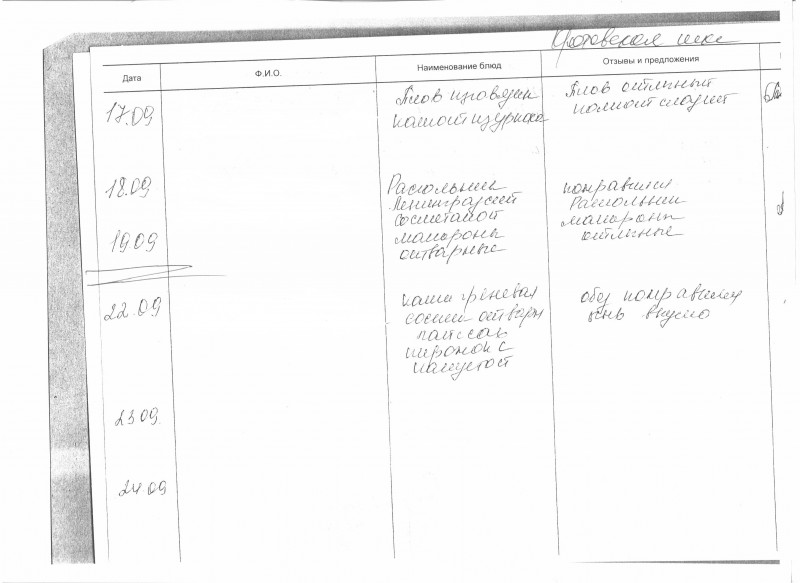 Кротовская шк
Дата Ф.И.О. Наименование блюд Отзывы и предложения
17.09 Плов из говядин Плов отличный
компот из урюка компот сладкий
18.09 Расольник понравился
Ленинградский Расольник
со сметаной макароны
19 09 макароны отличные
отварные
22.09 каша гречневая обед понравился
сосиски отварн очень вкусно
пирожок с
капустой
23 09.
24.09